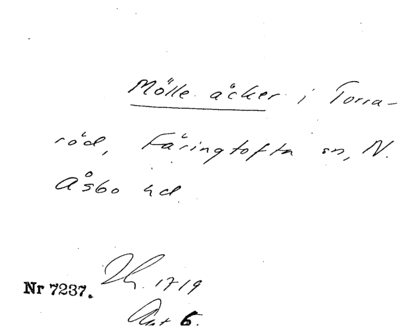 Mölle åcker i Torra-
röd, Färingtofta sn, N.
Åsbo hd.
1719
Nr 7237.
Akt 6.